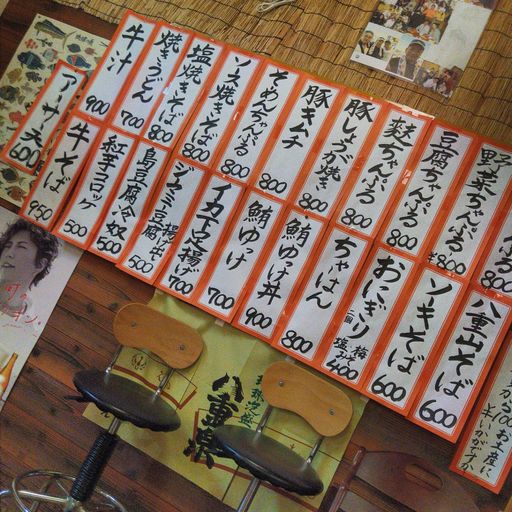 野菜ちゃんぷる 800
豆腐ちゃんぷる ¥800
麩ちゃんぷる 800
豚しょうが焼き 800
豚キムチ 800
そーめんちゃんぷる 800
ソース焼きそば 800
塩焼きそば 800
焼きうどん 700
牛汁 900
アーサ天 600
八重山そば 600
ソーキそば 600
おにぎり 二個 梅 塩 みそ 400
ちゃーはん 800
鮪ゆっけ丼 900
鮪ゆっけ 700
イカ下足揚げ 700
島豆腐冷奴 500
紅芋コロッケ 500
牛そば 950
お土産に
いかがですか
八重泉